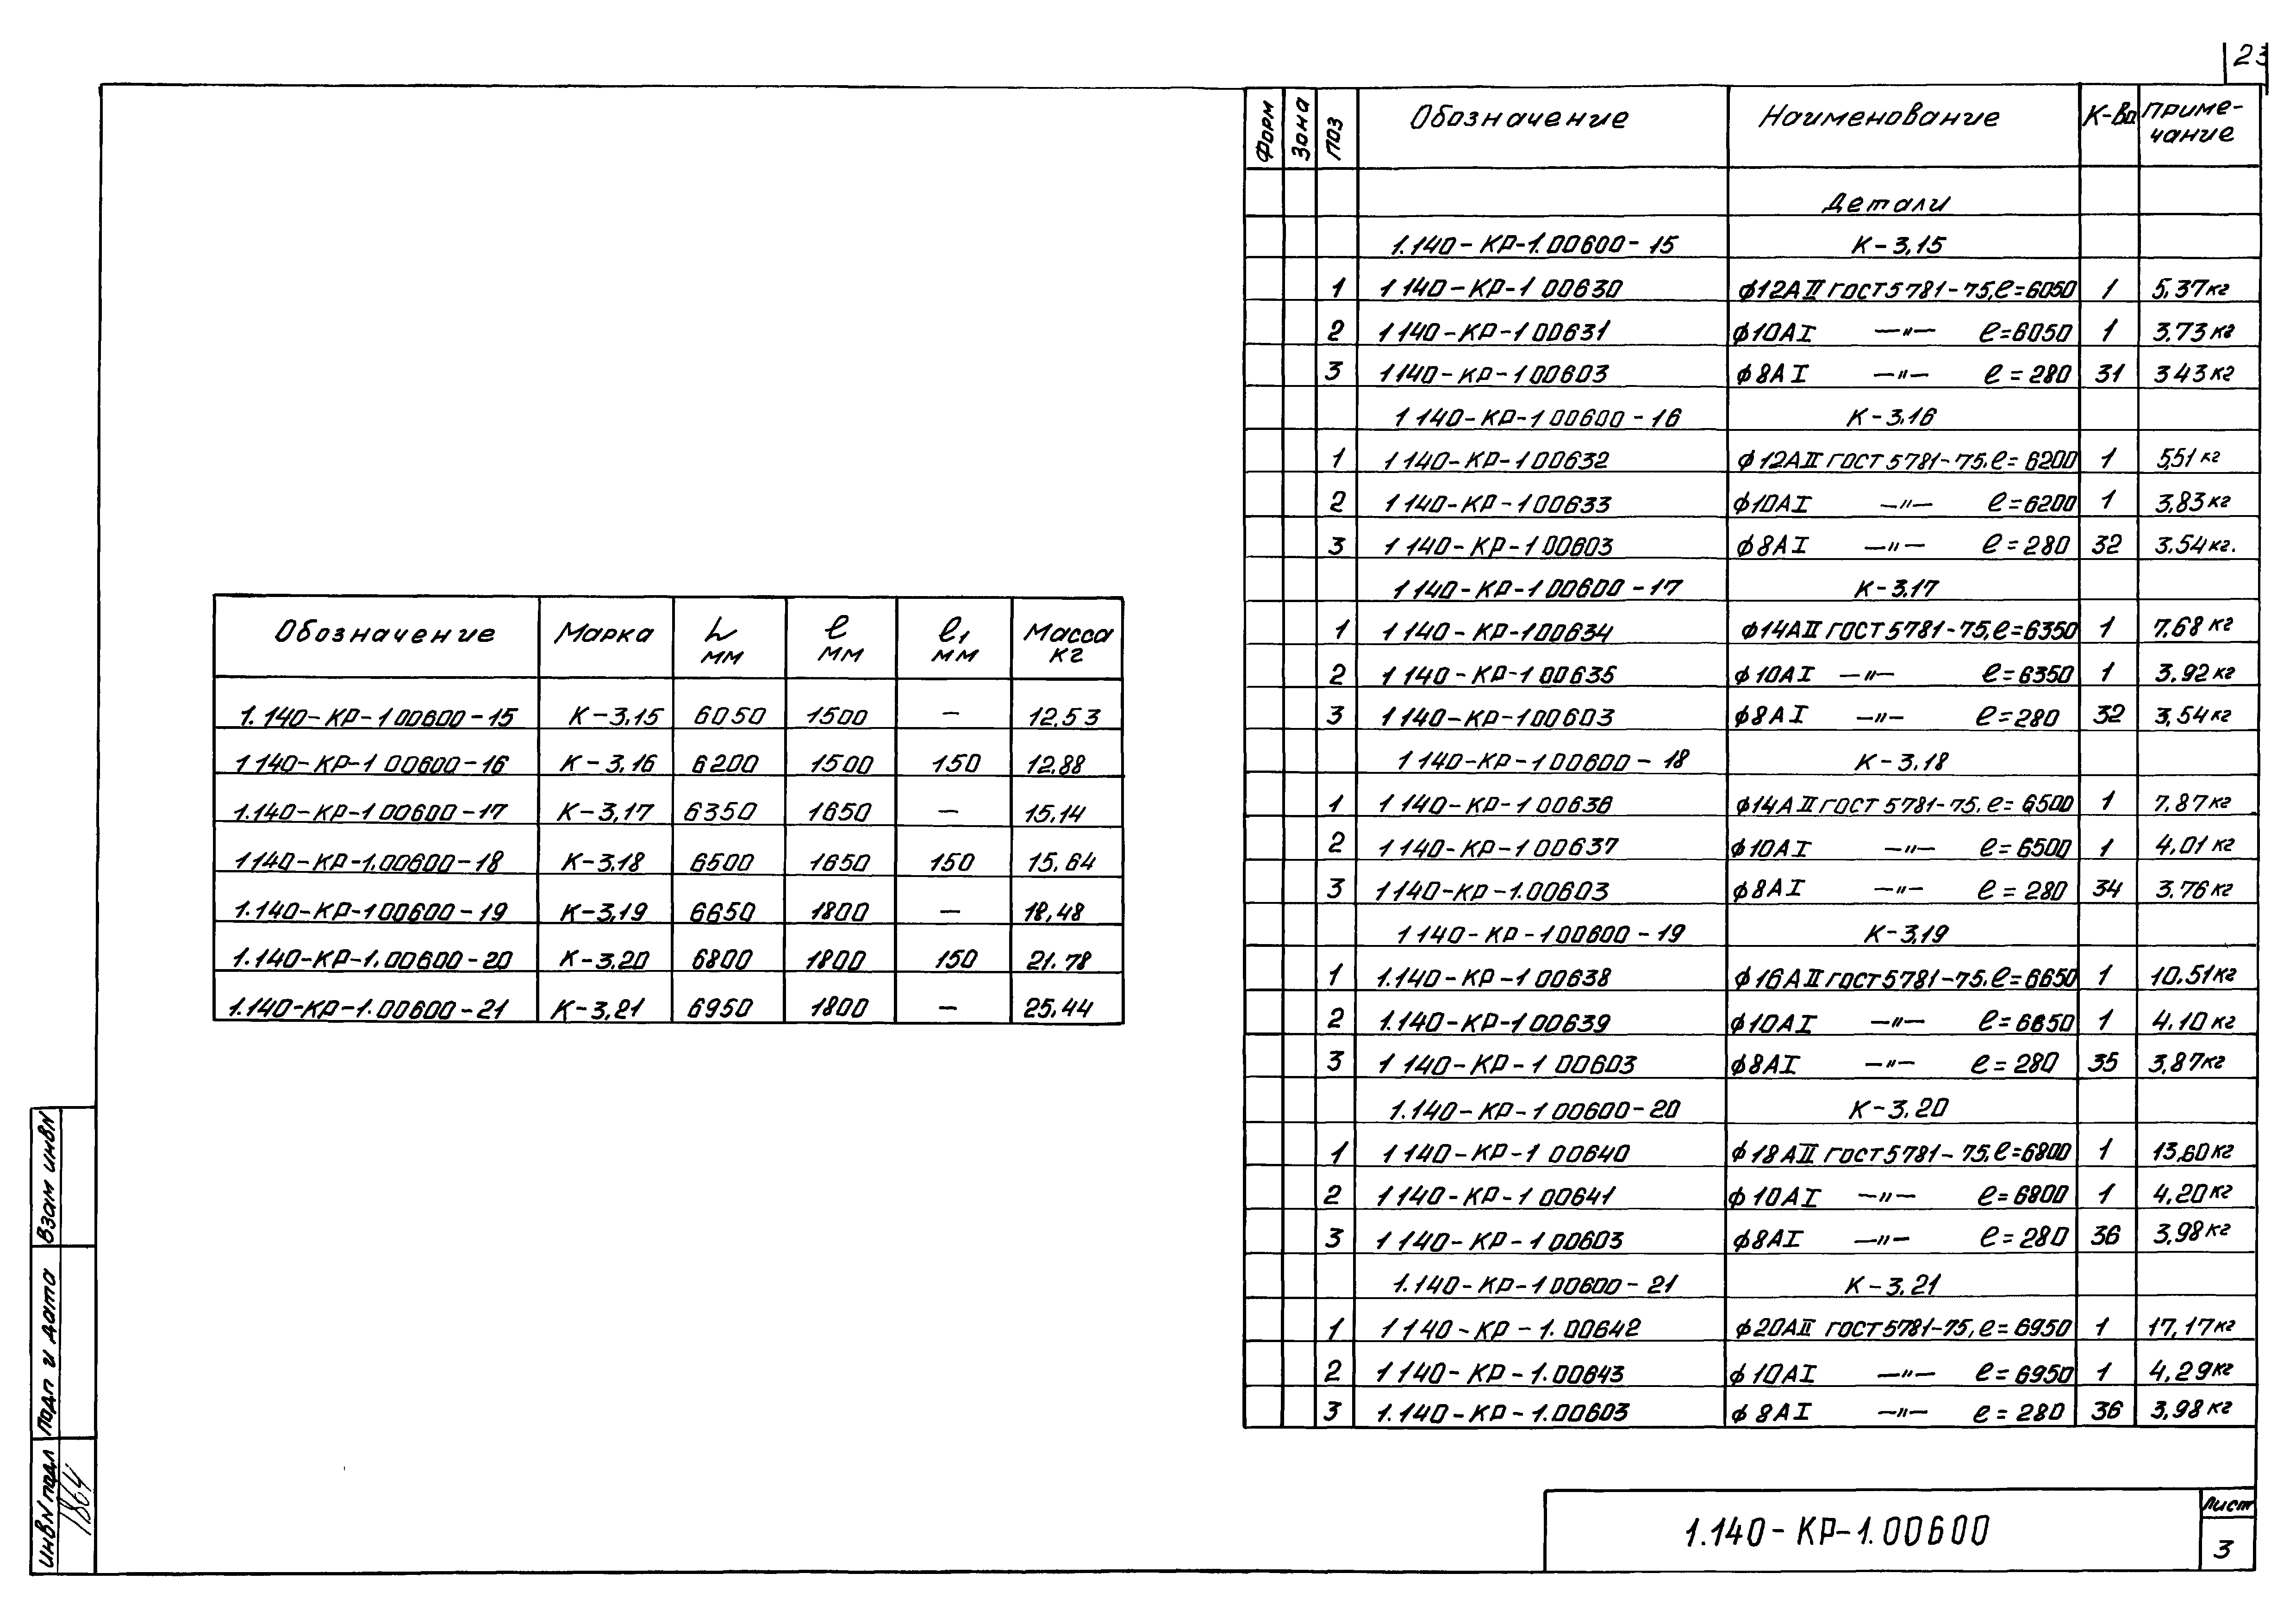 23
Обозначение Марка L мм ℓ мм ℓ1 мм Масса кг
1.140-КР-1 00600-15 К-3,15 6050 1500 — 12,53
1 140-КР-1 00600-16 К-3,16 6200 1500 150 12,88
1.140-КР-1 00600-17 К-3,17 6350 1650 — 15,14
1 140-КР-1.00600-18 К-3,18 6500 1650 150 15,64
1.140-КР-1 00600-19 К-3,19 6650 1800 — 18,48
1.140-КР-1.00600-20 К-3,20 6800 1800 150 21.78
1.140-КР-1.00600-21 К-3,21 6950 1800 — 25,44
Форм Зона Поз Обозначение Наименование К-во Приме-
чание
Детали
1.140-КР-1.00600-15 К-3,15
1 1 140-КР-1 00630 ϕ12АII ГОСТ 5781-75, ℓ=6050 1 5,37кг
2 1 140-КР-1 00631 ϕ10АI —"— ℓ=6050 1 3.73кг
3 1 140-КР-1 00603 ϕ8АI —"— ℓ=280 31 3 43кг
1 140-КР-1 00600-16 К-3,16
1 1 140-КР-1 00632 ϕ12АII ГОСТ 5781-75. ℓ=6200 1 5,51 кг
2 1 140-КР-1 00633 ϕ10АI —"— ℓ=6200 1 3,83кг
3 1 140-КР-1 00603 ϕ8АI —"— ℓ=280 32 3.54кг.
1 140-КР-1 00600-17 К-3,17
1 1 140-КР-1 00634 ϕ14АII ГОСТ 5781-75, ℓ=6350 1 7.68 кг
2 1 140-КР-1 00635 ϕ10АI —"— ℓ=6350 1 3,92кг
3 1 140-КР-1 00603 ϕ8АI —"— ℓ=280 32 3,54кг
1 140-КР-1 00600-18 К-3,18
1 1 140-КР-1 00636 ϕ14АII ГОСТ 5781-75, ℓ=6500 1 7,87кг
2 1 140-КР-1 00637 ϕ10АI —"— ℓ=6500 1 4,01 кг
3 1 140-КР-1.00603 ϕ8АI —"— ℓ=280 34 3.76кг
1 140-КР-1 00600-19 К-3,19
1 1.140-КР-1 00638 ϕ16АII ГОСТ 5781-75. ℓ=6650 1 10,51кг
2 1.140-КР-1 00639 ϕ10АI —"— ℓ=6650 1 4.10 кг
3 1 140-КР-1 00603 ϕ8АI —"— ℓ=280 35 3,87кг
1.140-КР-1 00600-20 К-3,20
1 1 140-КР-1 00640 ϕ18АII ГОСТ 5781-75, ℓ=6800 1 13,60кг
2 1 140-КР-1 00641 ϕ10АI —"— ℓ=6800 1 4,20кг
3 1 140-КР-1 00603 ϕ8АI —"— ℓ=280 36 3,98кг
1.140-КР-1 00600-21 К-3,21
1 1 140-КР-1.00642 ϕ20АII ГОСТ 5781-75, ℓ=6950 1 17,17кг
2 1 140-КР-1.00643 ϕ10АI —"— ℓ=6950 1 4,29кг
3 1.140-КР-1.00603 ϕ8АI —"— ℓ=280 36 3,98кг
Взам инвN
Подп и дата
ИнвN подл
1864
1.140-КР-1.00600
Лист
3